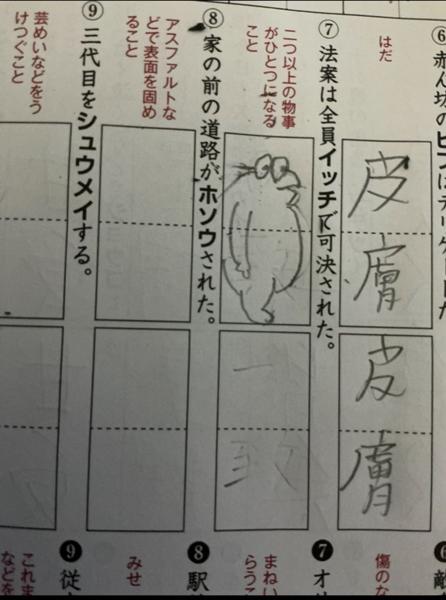 ⑥赤ん坊のヒフはデリケートだ
はだ
皮膚
皮膚
⑦法案は全員イッチで可決された。
二つ以上の物事
がひとつになる
こと
一致
⑧家の前の道路がホソウされた。
アスファルトな
どで表面を固め
ること
⑨三代目をシュウメイする。
芸めいなどをう
けつぐこと
⑥
傷のな
❼オ
まねい
らうこ
❽駅
みせ
❾従
これま
などを